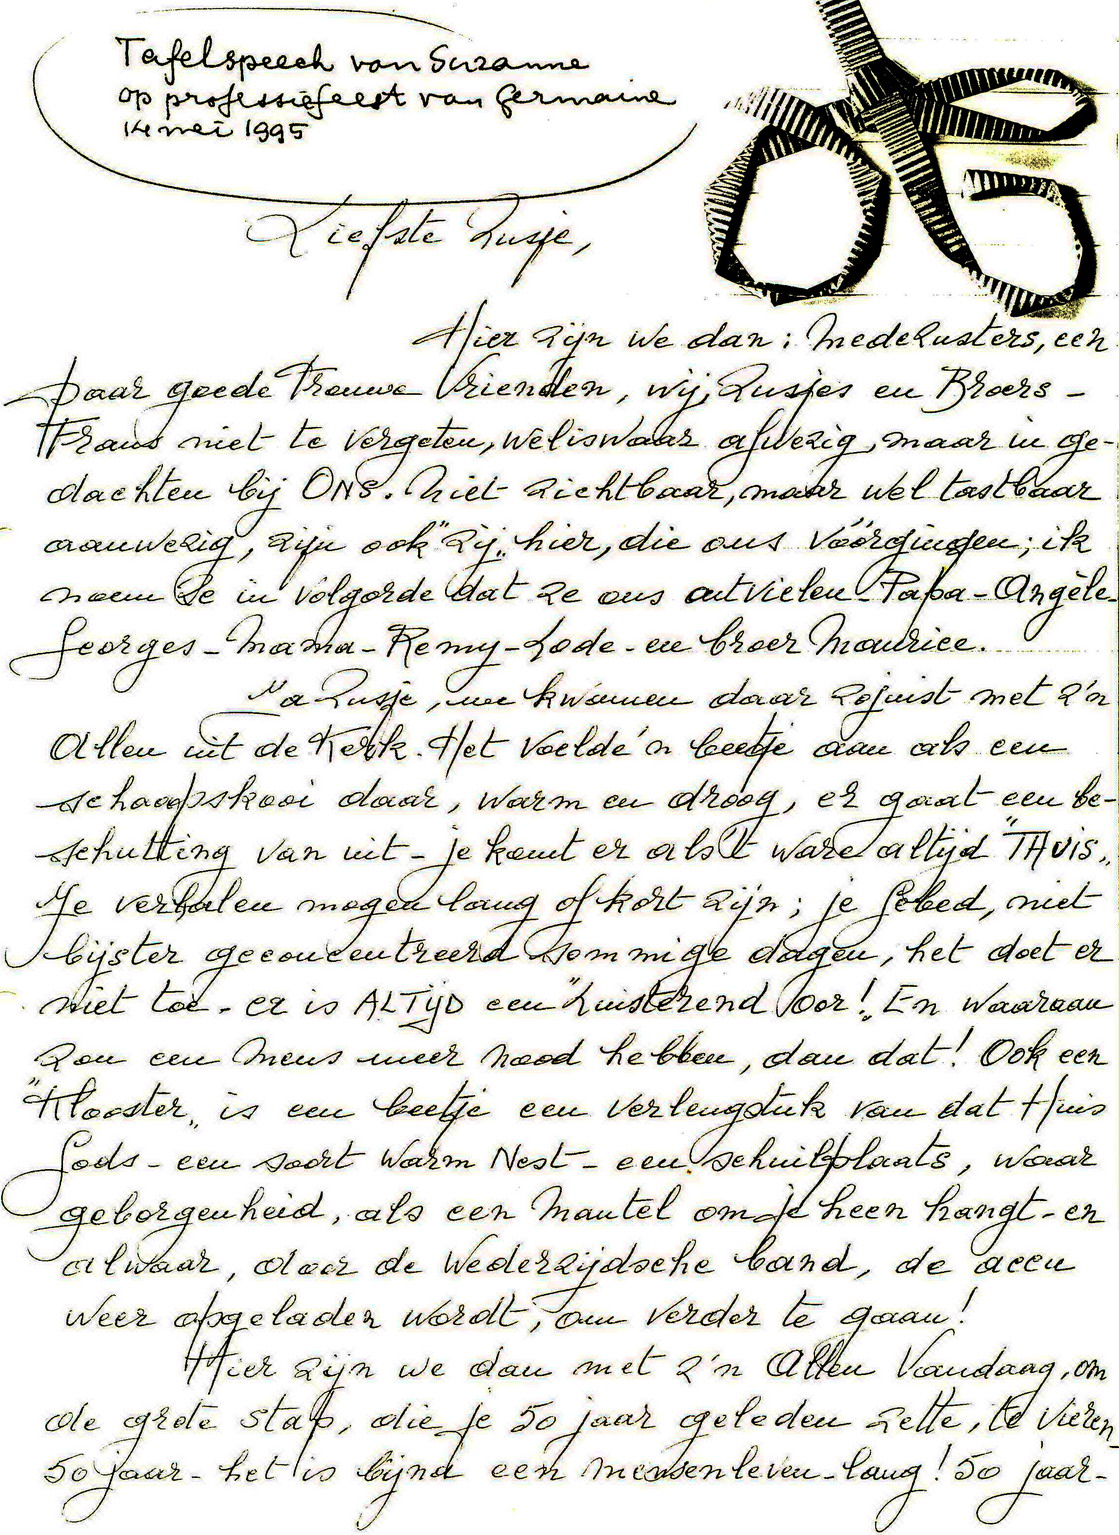 Tafelspeech van Suzanne
op professiefeest van Germaine
14 mei 1995
Liefste Zusje,
Hier zijn we dan: Medezusters, een
paar goede trouwe Vrienden, wij, Zusjes en Broers -
Frans niet te vergeten, weliswaar afwezig, maar in ge-
dachten bij ONS. Niet zichtbaar, maar wel tastbaar
aanwezig, zijn ook "zij" hier, die ons vóórgingen; ik
noem ze in volgorde dat ze ons ontvielen - Papa - Angèle -
Georges - Mama - Remy - Lode - en broer Maurice.
Ja Zusje, we kwamen daar zojuist met z'n
Allen uit de Kerk. Het voelde 'n beetje aan als een
schaapskooi daar, warm en droog, er gaat een be-
schutting van uit - je komt er als 't ware altijd "THUIS"
Je verhalen mogen lang of kort zijn; je Gebed, niet
bijster geconcentreerd sommige dagen, het doet er
niet toe - er is ALTIJD een "Luisterend Oor!" En waaraan
zou een mens meer nood hebben, dan dat! Ook een
"Klooster" is een beetje een verlengstuk van dat Huis
Gods - een soort Warm Nest - een schuilplaats, waar
geborgenheid, als een Mantel om je heen hangt - en
alwaar, door de wederzijdsche band, de accu
weer opgeladen wordt, om verder te gaan!
Hier zijn we dan met z'n Allen Vandaag, om
de grote stap, die je 50 jaar geleden zette, te vieren
50 jaar - het is bijna een mensenleven - lang! 50 jaar -